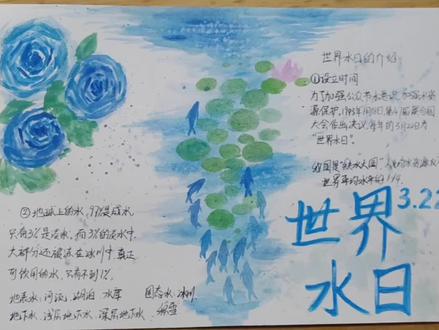 世界水日的介绍
①设立时间
为了加强公众节水意识,加强水资
源保护,1993年1月18日,第47届联合国
大会作出决议,每年的3月22日为
"世界水日".
我国是"缺水大国"
世界平均水平的1/4.
3.22
世界
水日
②地球上的水,97%是咸水
只有3%是淡水,而3%的淡水中,
大部分还被冻在冰川中,真正
可饮用的水,只有不到1%.
地表水:河流、湖泊、水库
地下水:浅层地下水、深层地下水.
固态水:冰川、
积雪